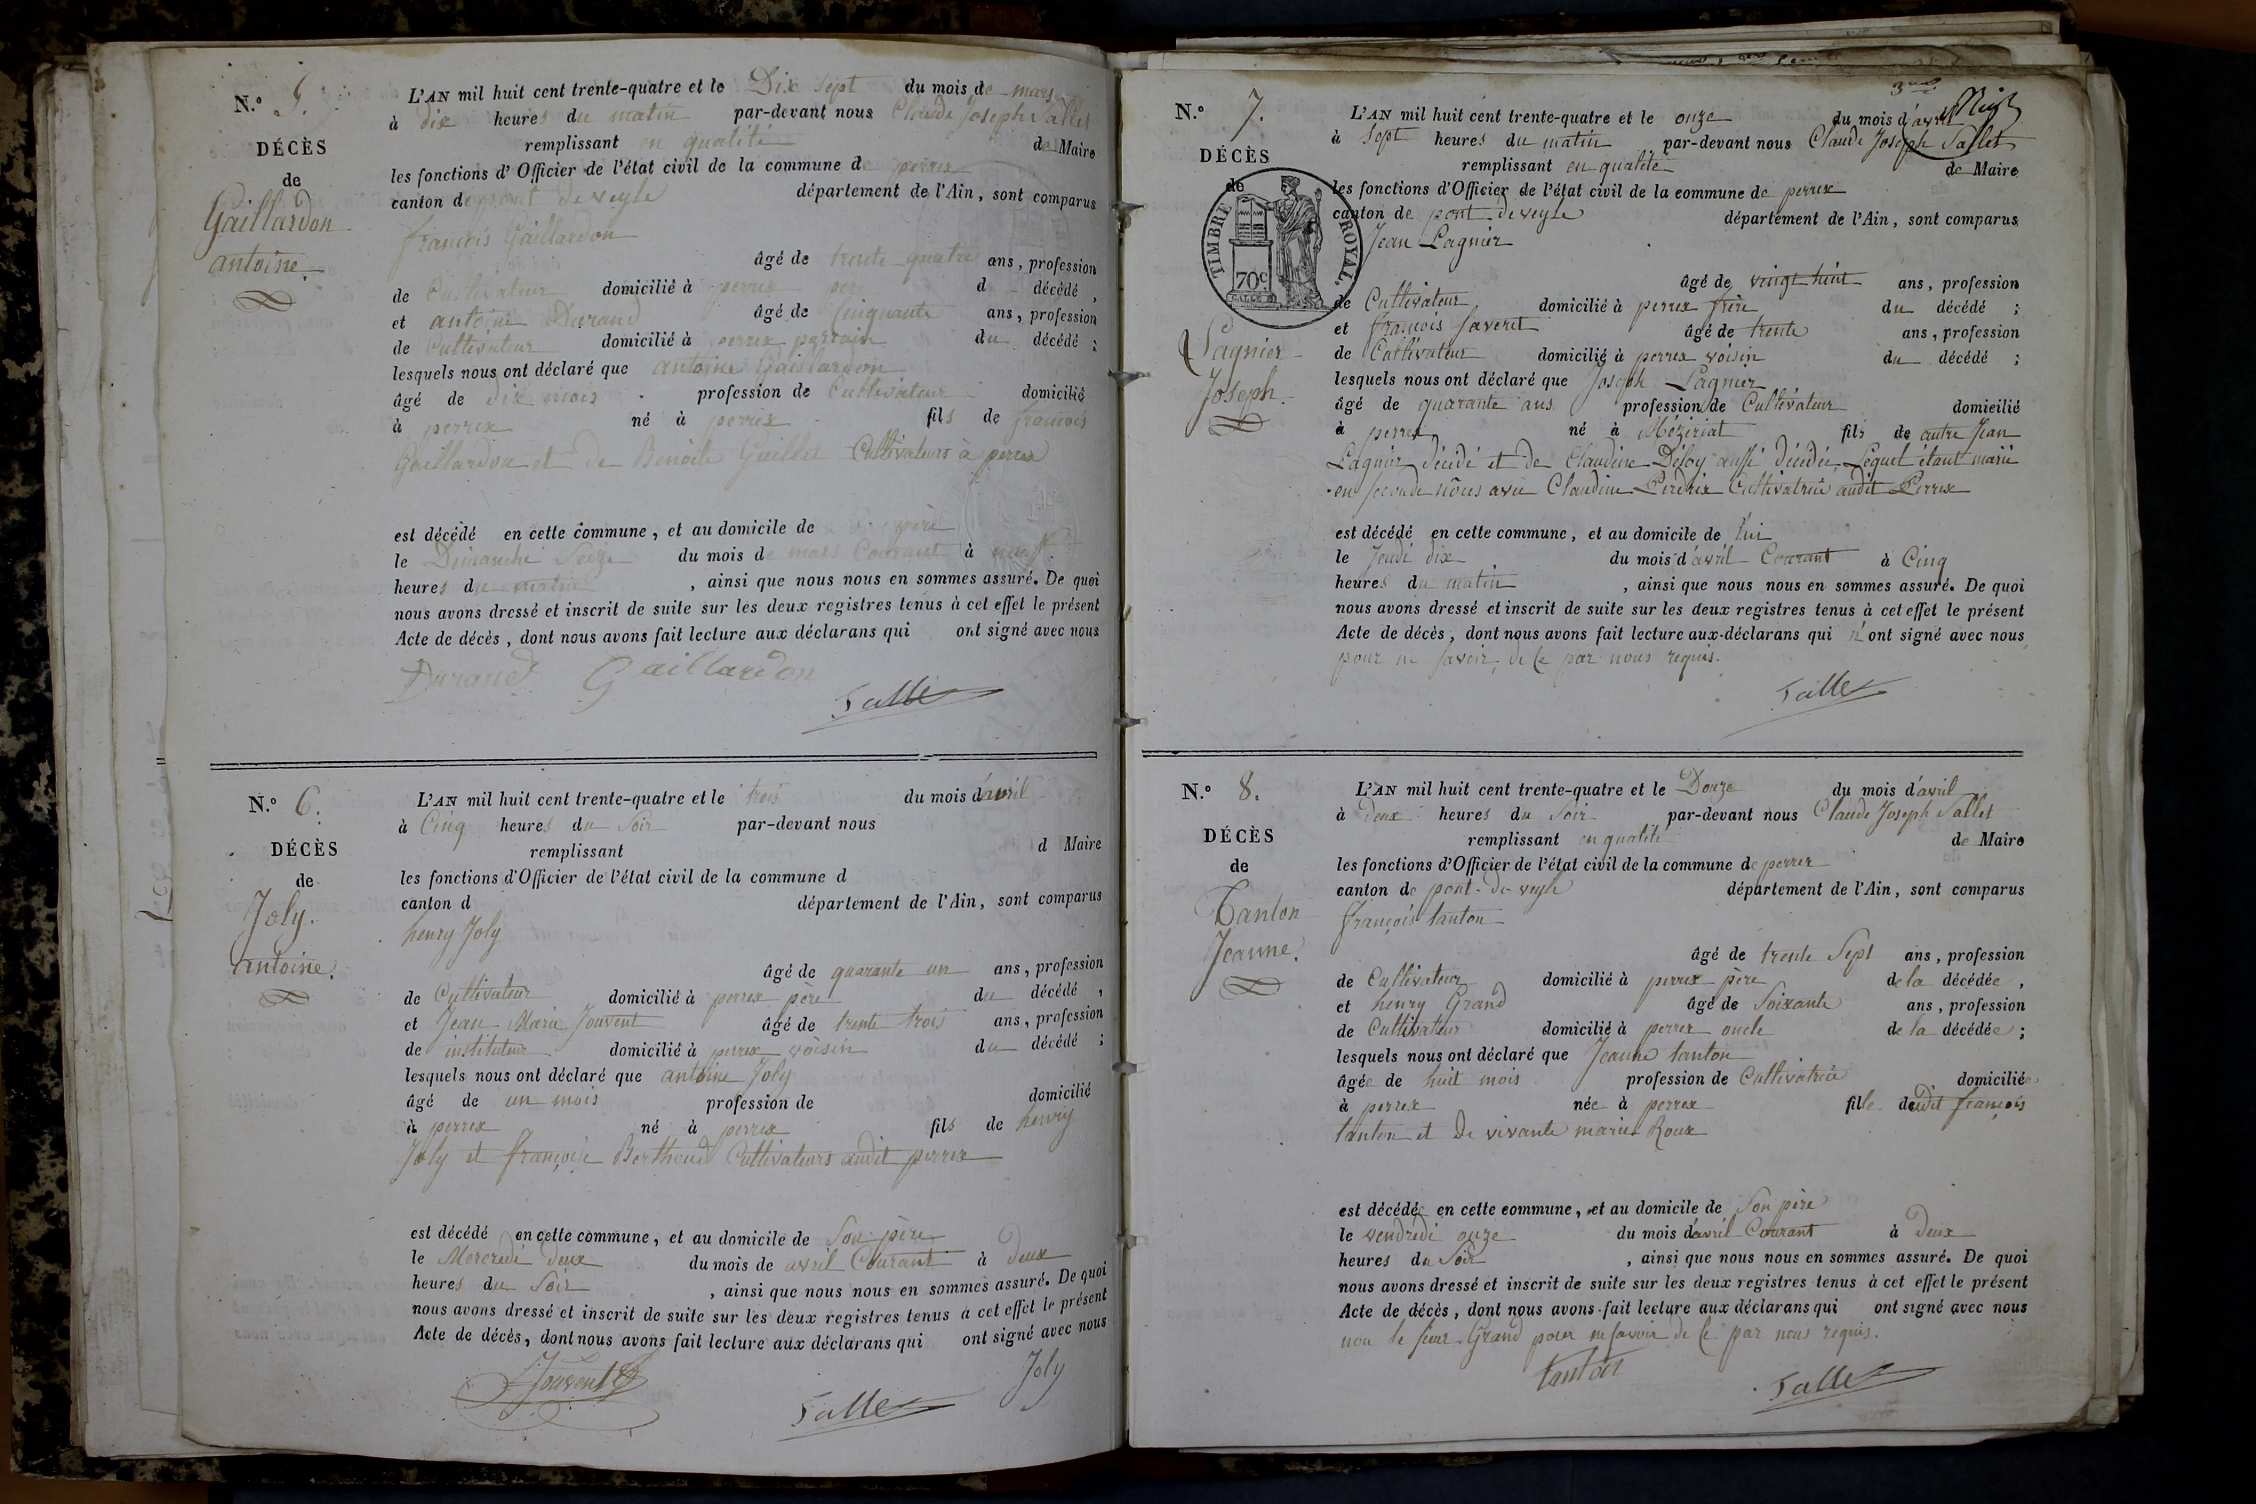 N.º 5.
DÉCÈS
de
Gaillardon
antoine.
L'AN mil huit cent trente-quatre et le Dix Sept du mois de mars
à dix heures du matin par-devant nous Claude Joseph Sallet
remplissant en qualité de Maire
les fonctions d'Officier de l'état civil de la commune de perrex
canton de pont de veyle département de l'Ain, sont comparus
françois Gaillardon
âgé de trente quatre ans, profession
de Cultivateur domicilié à perrex d décédé,
et antoine Durand âgé de Cinquante ans, profession
de Cultivateur domicilié à perrex parrain du décédé;
lesquels nous ont déclaré que antoine Gaillardon
âgé de dix mois profession de Cultivateur domicilié
à perrex né à perrex fils de françois
Gaillardon et de Benoite Guillet Cultivateurs à perrex
est décédé en cette commune, et au domicile de père
le Dimanche Seize du mois de mars Courant à neuf
heures du matin, ainsi que nous nous en sommes assuré. De quoi
nous avons dressé et inscrit de suite sur les deux registres tenus à cet effet le présent
Acte de décès, dont nous avons fait lecture aux déclarans qui ont signé avec nous
Durand Gaillardon
Sallet
N.º 6.
DÉCÈS
de
Joly.
antoine.
L'AN mil huit cent trente-quatre et le trois du mois d'avril
à Cinq heures du Soir par-devant nous
remplissant d Maire
les fonctions d'Officier de l'état civil de la commune d
canton d département de l'Ain, sont comparus
henry Joly
âgé de quarante un ans, profession
de Cultivateur domicilié à perrex père du décédé,
et Jean Marie Jouvent âgé de trente trois ans, profession
de instituteur domicilié à perrex voisin du décédé;
lesquels nous ont déclaré que antoine Joly
âgé de un mois profession de domicilié
à perrex né à perrex fils de henry
Joly et françoise Bertheud Cultivateurs audit perrex
est décédé en cette commune, et au domicile de Son père
le Mercredi deux du mois de avril Courant à deux
heures du Soir, ainsi que nous nous en sommes assuré. De quoi
nous avons dressé et inscrit de suite sur les deux registres tenus à cet effet le présent
Acte de décès, dont nous avons fait lecture aux déclarans qui ont signé avec nous
Jouvent Joly
Sallet
3me
N.º 7.
DÉCÈS
de
TIMBRE ROYAL.
70c
Lagnier
Joseph.
L'AN mil huit cent trente-quatre et le onze du mois d'avril
à Sept heures du matin par-devant nous Claude Joseph Sallet
remplissant en qualité de Maire
les fonctions d'Officier de l'état civil de la commune de perrex
canton de pont de veyle département de l'Ain, sont comparus
Jean Lagnier
âgé de vingt huit ans, profession
de Cultivateur domicilié à perrex frère du décédé;
et françois faveret âgé de trente ans, profession
de Cultivateur domicilié à perrex voisin du décédé;
lesquels nous ont déclaré que Joseph Lagnier
âgé de quarante ans profession de Cultivateur domicilié
à perrex né à Mézériat fils de autre Jean
Lagnier décédé et de Claudine Défoy aussi décédée Lequel étant marié
en seconde nôces avec Claudine Perdrix Cultivatrice audit Perrex
est décédé en cette commune, et au domicile de lui
le Jeudi dix du mois d'avril Courant à Cinq
heures du matin, ainsi que nous nous en sommes assuré. De quoi
nous avons dressé et inscrit de suite sur les deux registres tenus à cet effet le présent
Acte de décès, dont nous avons fait lecture aux déclarans qui n'ont signé avec nous
pour ne savoir, de ce par nous requis.
Sallet
N.º 8.
DÉCÈS
de
Tanton
Jeanne.
L'AN mil huit cent trente-quatre et le Douze du mois d'avril
à deux heures du Soir par-devant nous Claude Joseph Sallet
remplissant en qualité de Maire
les fonctions d'Officier de l'état civil de la commune de perrex
canton de pont-de-veyle département de l'Ain, sont comparus
françois tanton
âgé de trente Sept ans, profession
de Cultivateur domicilié à perrex père de la décédée,
et henry Grand âgé de Soixante ans, profession
de Cultivateur domicilié à perrex oncle de la décédée;
lesquels nous ont déclaré que Jeanne tanton
âgée de huit mois profession de Cultivatrice domiciliée
à perrex née à perrex fille dudit françois
tanton et de vivante marie Roux
est décédée en cette commune, et au domicile de Son père
le vendredi onze du mois d'avril Courant à deux
heures du Soir, ainsi que nous nous en sommes assuré. De quoi
nous avons dressé et inscrit de suite sur les deux registres tenus à cet effet le présent
Acte de décès, dont nous avons fait lecture aux déclarans qui ont signé avec nous
non le sieur Grand pour ne savoir de ce par nous requis.
tanton
Sallet